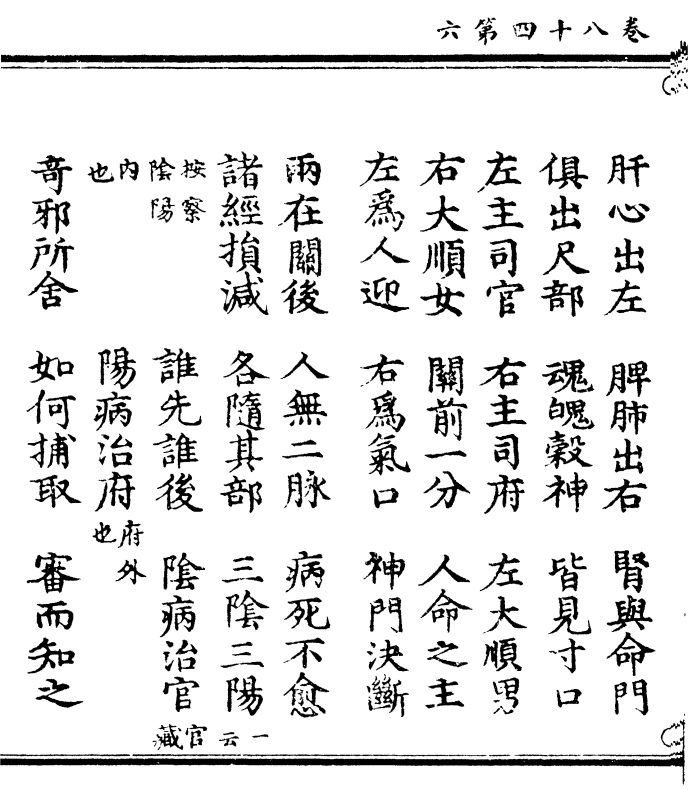 卷八十四第六
肝心出左 脾肺出右 腎與命門
俱出尺部 魂魄穀神 皆見寸口
左主司官 右主司府 左大順男
右大順女 關前一分 人命之主
左爲人迎 右爲氣口 神門決斷
兩在關後 人無二脉 病死不愈
諸經損減 各隨其部 三陰三陽
一云按察陰陽 誰先誰後 陰病治官
官藏
内也 陽病治府 府外也
奇邪所舍 如何捕取 審而知之